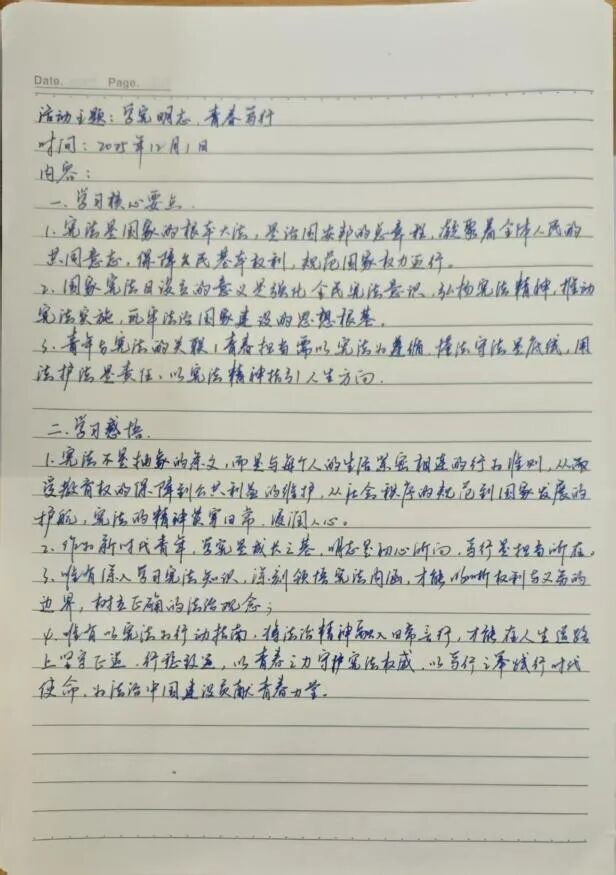 Date. Page.
活动主题：学宪明志，青春笃行
时间：2025年12月1日
内容：
一、学习核心要点
1. 宪法是国家的根本大法，是治国安邦的总章程，凝聚着全体人民的
共同意志，保障公民基本权利，规范国家权力运行。
2. 国家宪法日设立的意义是强化全民宪法意识，弘扬宪法精神，推动
宪法实施，筑牢法治国家建设的思想根基。
3. 青年与宪法的关联：青春担当需以宪法为遵循，懂法守法是底线，用
法护法是责任，以宪法精神指引人生方向。
二、学习感悟
1. 宪法不是抽象的条文，而是与每个人的生活紧密相连的行为准则，从
受教育权的保障到公共利益的维护，从社会秩序的规范到国家发展的
护航，宪法的精神贯穿日常，浸润人心。
2. 作为新时代青年，学宪是成长之基，明志是初心所向，笃行是担当所在。
3. 唯有深入学习宪法知识，深刻领悟宪法内涵，才能明晰权利与义务的
边界，树立正确的法治观念；
4. 唯有以宪法为行动指南，将法治精神融入日常言行，才能在人生道路
上坚守正道、行稳致远，以青春之力守护宪法权威，以笃行之举践行时代
使命，为法治中国建设贡献青春力量。